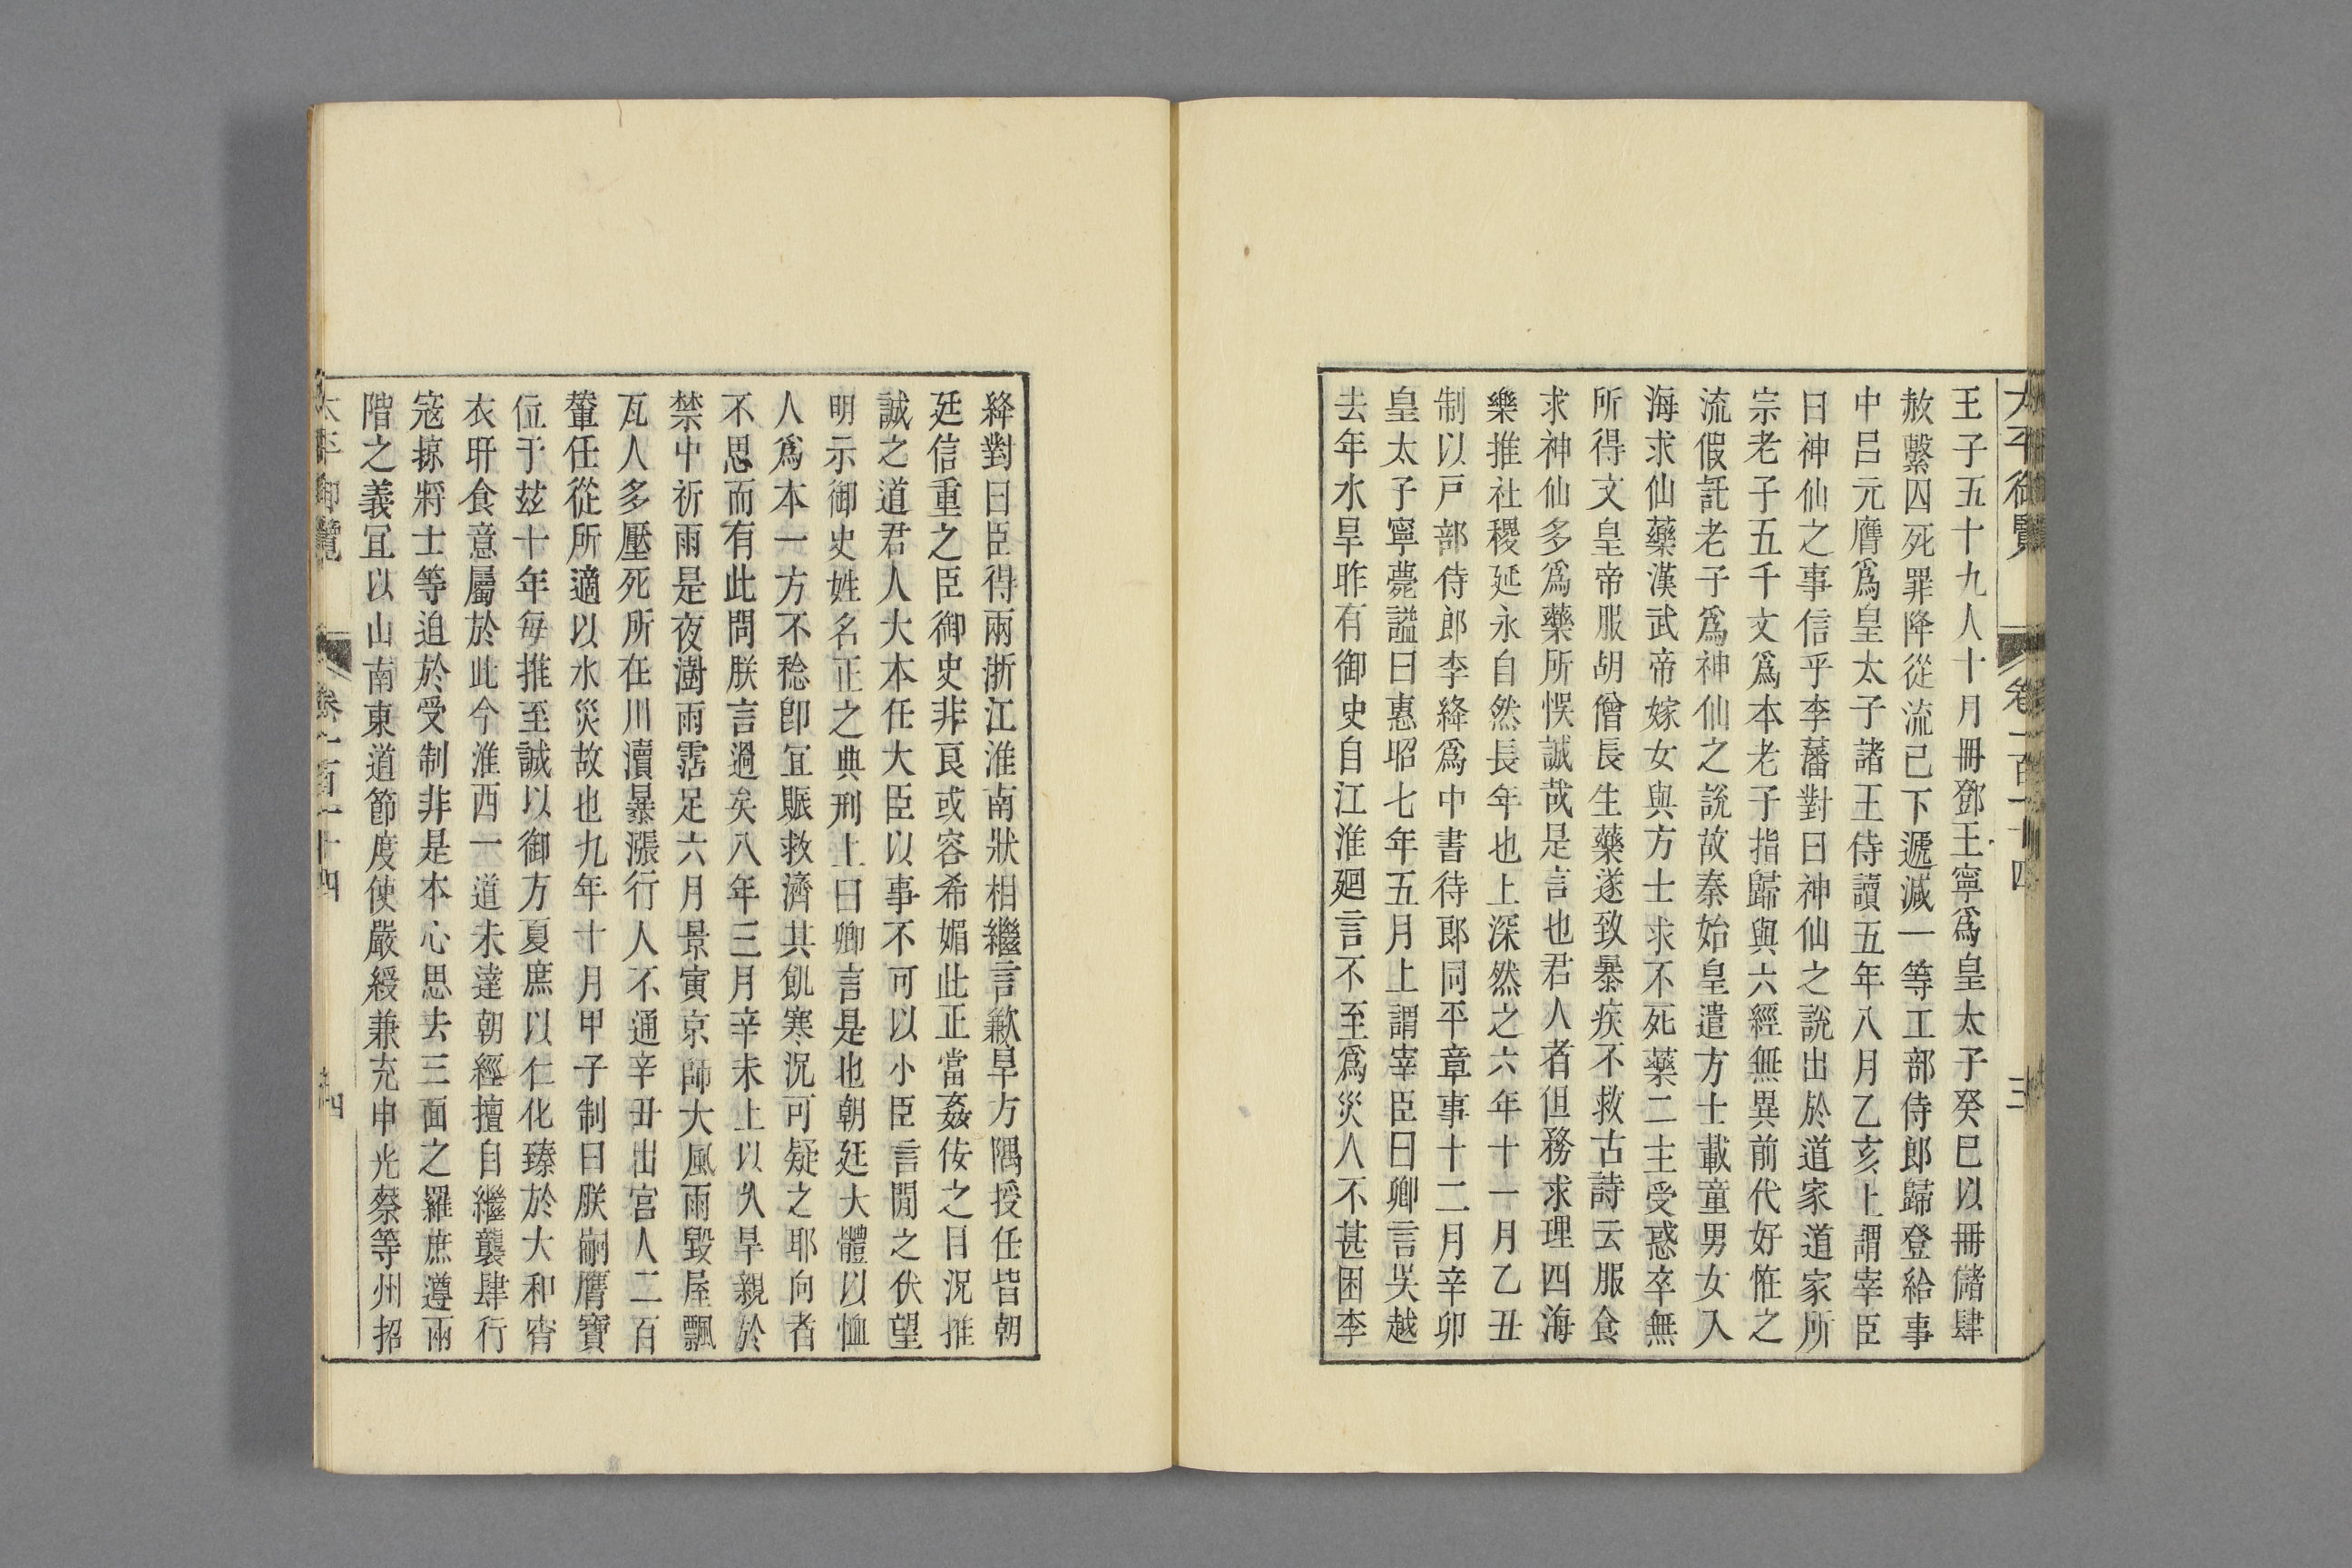 太平御覽 卷一百一十四 三
王子五十九人十月冊鄧王寧爲皇太子癸巳以冊儲肆
赦繫囚死罪降從流已下遞減一等工部侍郎歸登給事
中呂元膺爲皇太子諸王侍讀五年八月乙亥上謂宰臣
曰神仙之事信乎李藩對曰神仙之說出於道家道家所
宗老子五千文爲本老子指歸與六經無異前代好恠之
流假託老子爲神仙之說故秦始皇遣方士載童男女入
海求仙藥漢武帝嫁女與方士求不死藥二主受惑卒無
所得文皇帝服胡僧長生藥遂致暴疾不救古詩云服食
求神仙多爲藥所悞誠哉是言也君人者但務求理四海
樂推社稷延永自然長年也上深然之六年十一月乙丑
制以戸部侍郎李絳爲中書侍郎同平章事十二月辛卯
皇太子寧薨謚曰惠昭七年五月上謂宰臣曰卿言吳越
去年水旱昨有御史自江淮廻言不至爲災人不甚困李
絳對曰臣得兩浙江淮南狀相繼言歉旱方隅授任皆朝
廷信重之臣御史非良或容希媚此正當姦佞之目況推
誠之道君人大本任大臣以事不可以小臣言閒之伏望
明示御史姓名正之典刑上曰卿言是也朝廷大體以恤
人爲本一方不稔卽宜賑救濟其飢寒況可疑之耶向者
不思而有此問朕言過矣八年三月辛未上以久旱親於
禁中祈雨是夜澍雨霑足六月景寅京師大風雨毀屋飄
瓦人多壓死所在川瀆暴漲行人不通辛丑出宮人二百
轝任從所適以水災故也九年十月甲子制曰朕嗣膺寶
位于兹十年毎推至誠以御方夏庶以仁化臻於大和宵
衣旰食意屬於此今淮西一道未達朝經擅自繼襲肆行
寇掠將士等迫於受制非是本心思去三面之羅庶遵兩
階之義宜以山南東道節度使嚴綬兼充申光蔡等州招
太平御覽 卷一百一十四 四